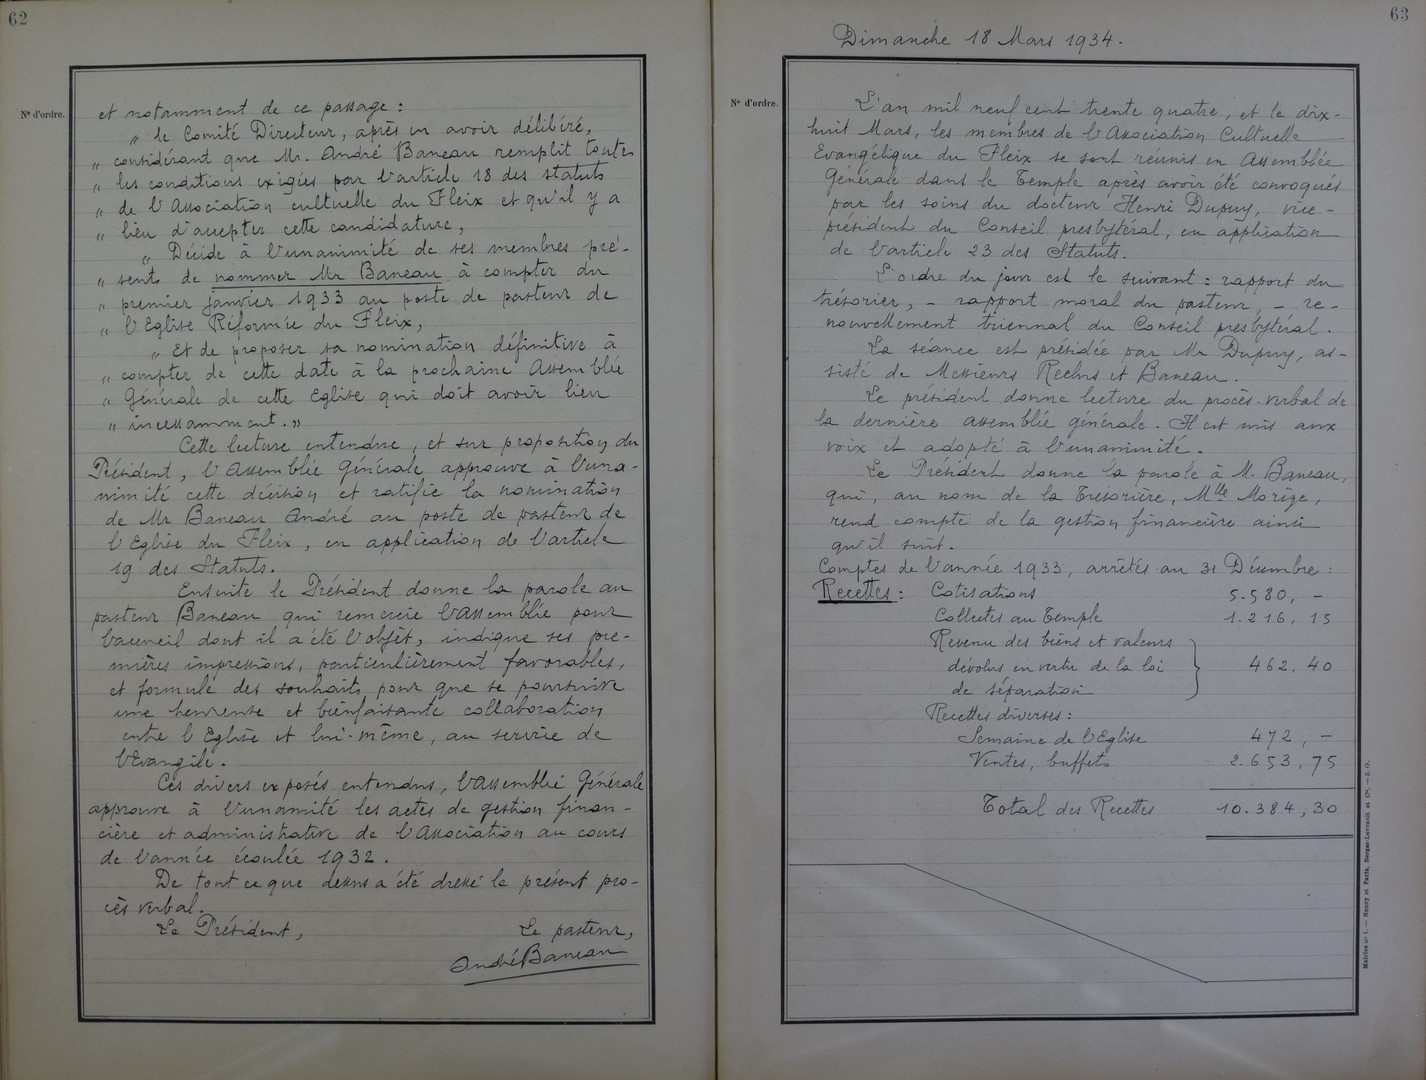 62
N° d'ordre.
et notamment de ce passage :
„ le Comité Directeur, après en avoir délibéré,
„ considérant que Mr. André Baneau remplit toutes
„ les conditions exigées par l'article 18 des statuts
„ de l'Association cultuelle du Fleix et qu'il y a
„ lieu d'accepter cette candidature,
„ Décide à l'unanimité de ses membres pré-
„ sents de nommer Mr Baneau à compter du
„ premier janvier 1933 au poste de pasteur de
„ l'Eglise Réformée du Fleix,
„ Et de proposer sa nomination définitive à
„ compter de cette date à la prochaine Assemblée
„ Générale de cette Eglise qui doit avoir lieu
„ incessamment. »
Cette lecture entendue, et sur proposition du
Président, l'Assemblée Générale approuve à l'una-
nimité cette décision et ratifie la nomination
de Mr Baneau André au poste de pasteur de
l'Eglise du Fleix, en application de l'article
19 des Statuts.
Ensuite le Président donne la parole au
pasteur Baneau qui remercie l'assemblée pour
l'accueil dont il a été l'objet, indique ses pre-
mières impressions, particulièrement favorables,
et formule des souhaits pour que se poursuive
une heureuse et bienfaisante collaboration
entre l'Eglise et lui-même, au service de
l'Evangile.
Ces divers exposés entendus, l'Assemblée Générale
approuve à l'unamité les actes de gestion finan-
cière et administrative de l'Association au cours
de l'année écoulée 1932.
De tout ce que dessus a été dressé le présent pro-
cès verbal.
Le Président,     Le pasteur,
André Baneau
63
Dimanche 18 Mars 1934.
N° d'ordre.
L'an mil neuf cent trente quatre, et le dix-
huit Mars, les membres de l'Association Cultuelle
Evangélique du Fleix se sont réunis en Assemblée
Générale dans le Temple après avoir été convoqués
par les soins du docteur Henri Dupuy, vice-
président du Conseil presbytéral, en application
de l'article 23 des Statuts.
L'ordre du jour est le suivant : rapport du
trésorier, – rapport moral du pasteur, – re-
nouvellement triennal du Conseil presbytéral.
La séance est présidée par Mr Dupuy, as-
sisté de Messieurs Reclus et Baneau.
Le président donne lecture du procès-verbal de
la dernière assemblée générale. Il est mis aux
voix et adopté à l'unanimité.
Le Président donne la parole à M. Baneau,
qui, au nom de la Trésorière, Mlle Morize,
rend compte de la gestion financière ainsi
qu'il suit.
Comptes de l'année 1933, arrêtés au 31 Décembre :
Recettes : Cotisations 5.580, –
Collectes au Temple 1.216, 15
Revenu des biens et valeurs
dévolus en vertu de la loi 462, 40
de séparation
Recettes diverses :
Semaine de l'Eglise 472, –
Ventes, buffets 2.653, 75
Total des Recettes 10.384, 30
Mairies n° 1. — Nancy et Paris, Berger-Levrault et Cie. — S. O.